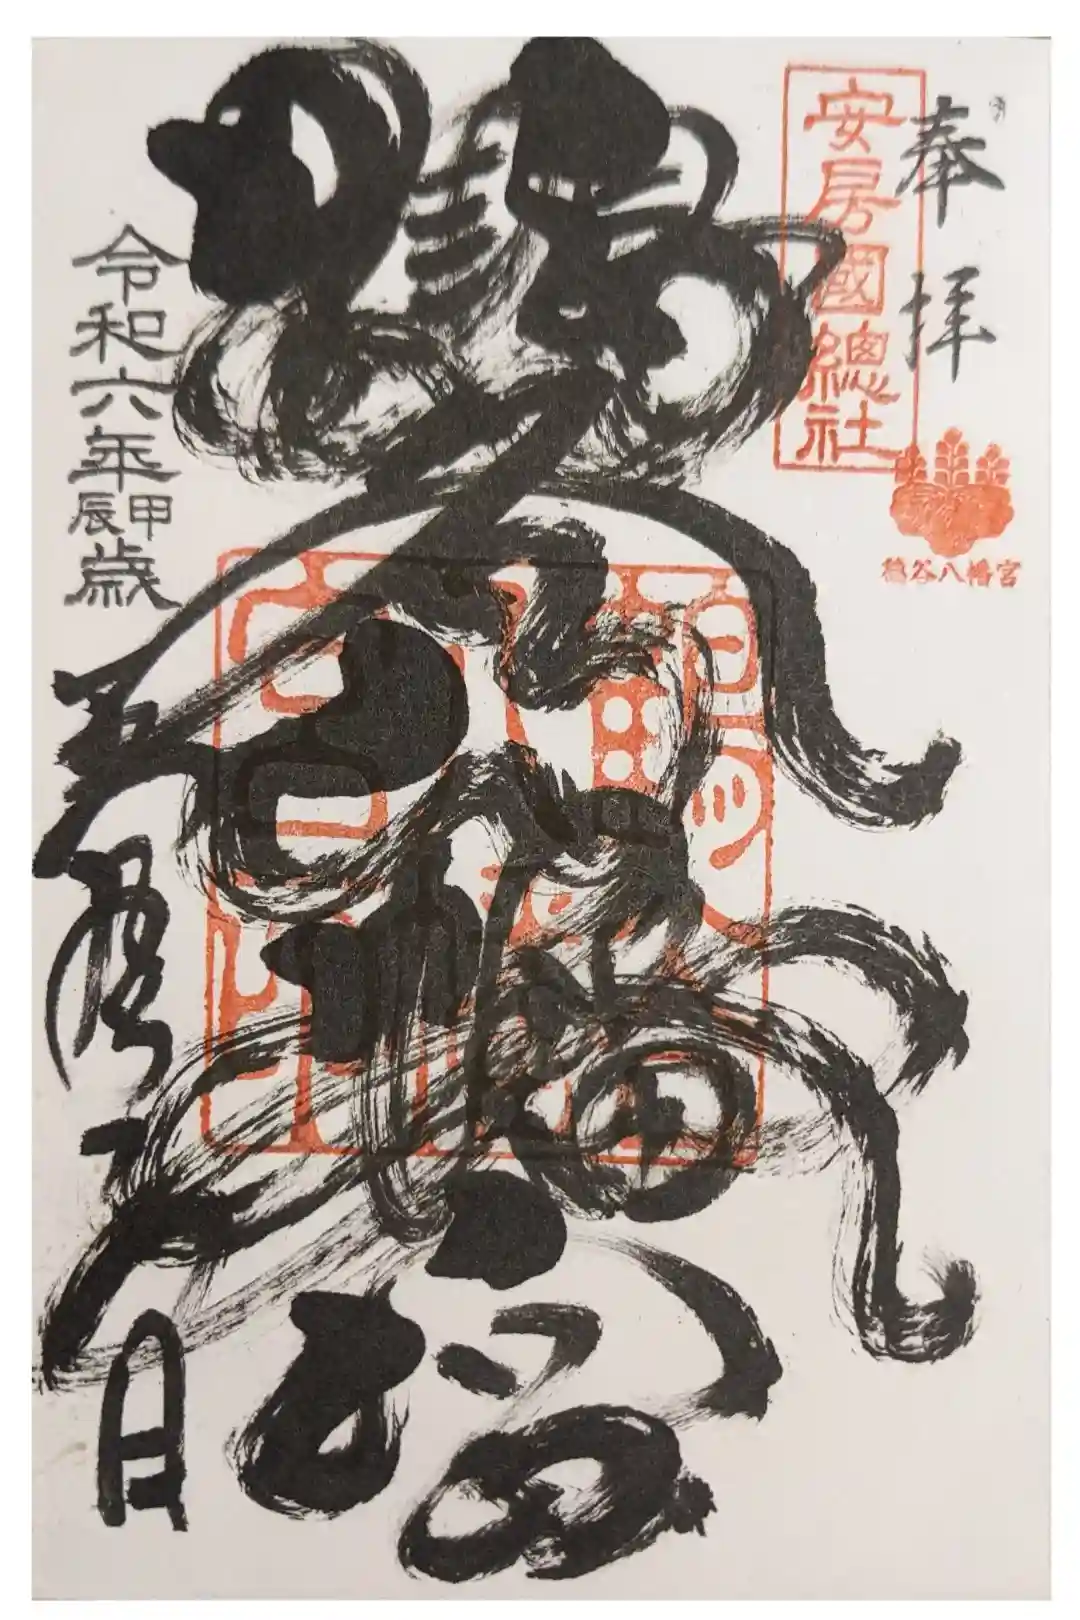 奉拝
安房國總社
鶴谷八幡宮
鶴谷八幡宮
令和六年甲辰歳
日